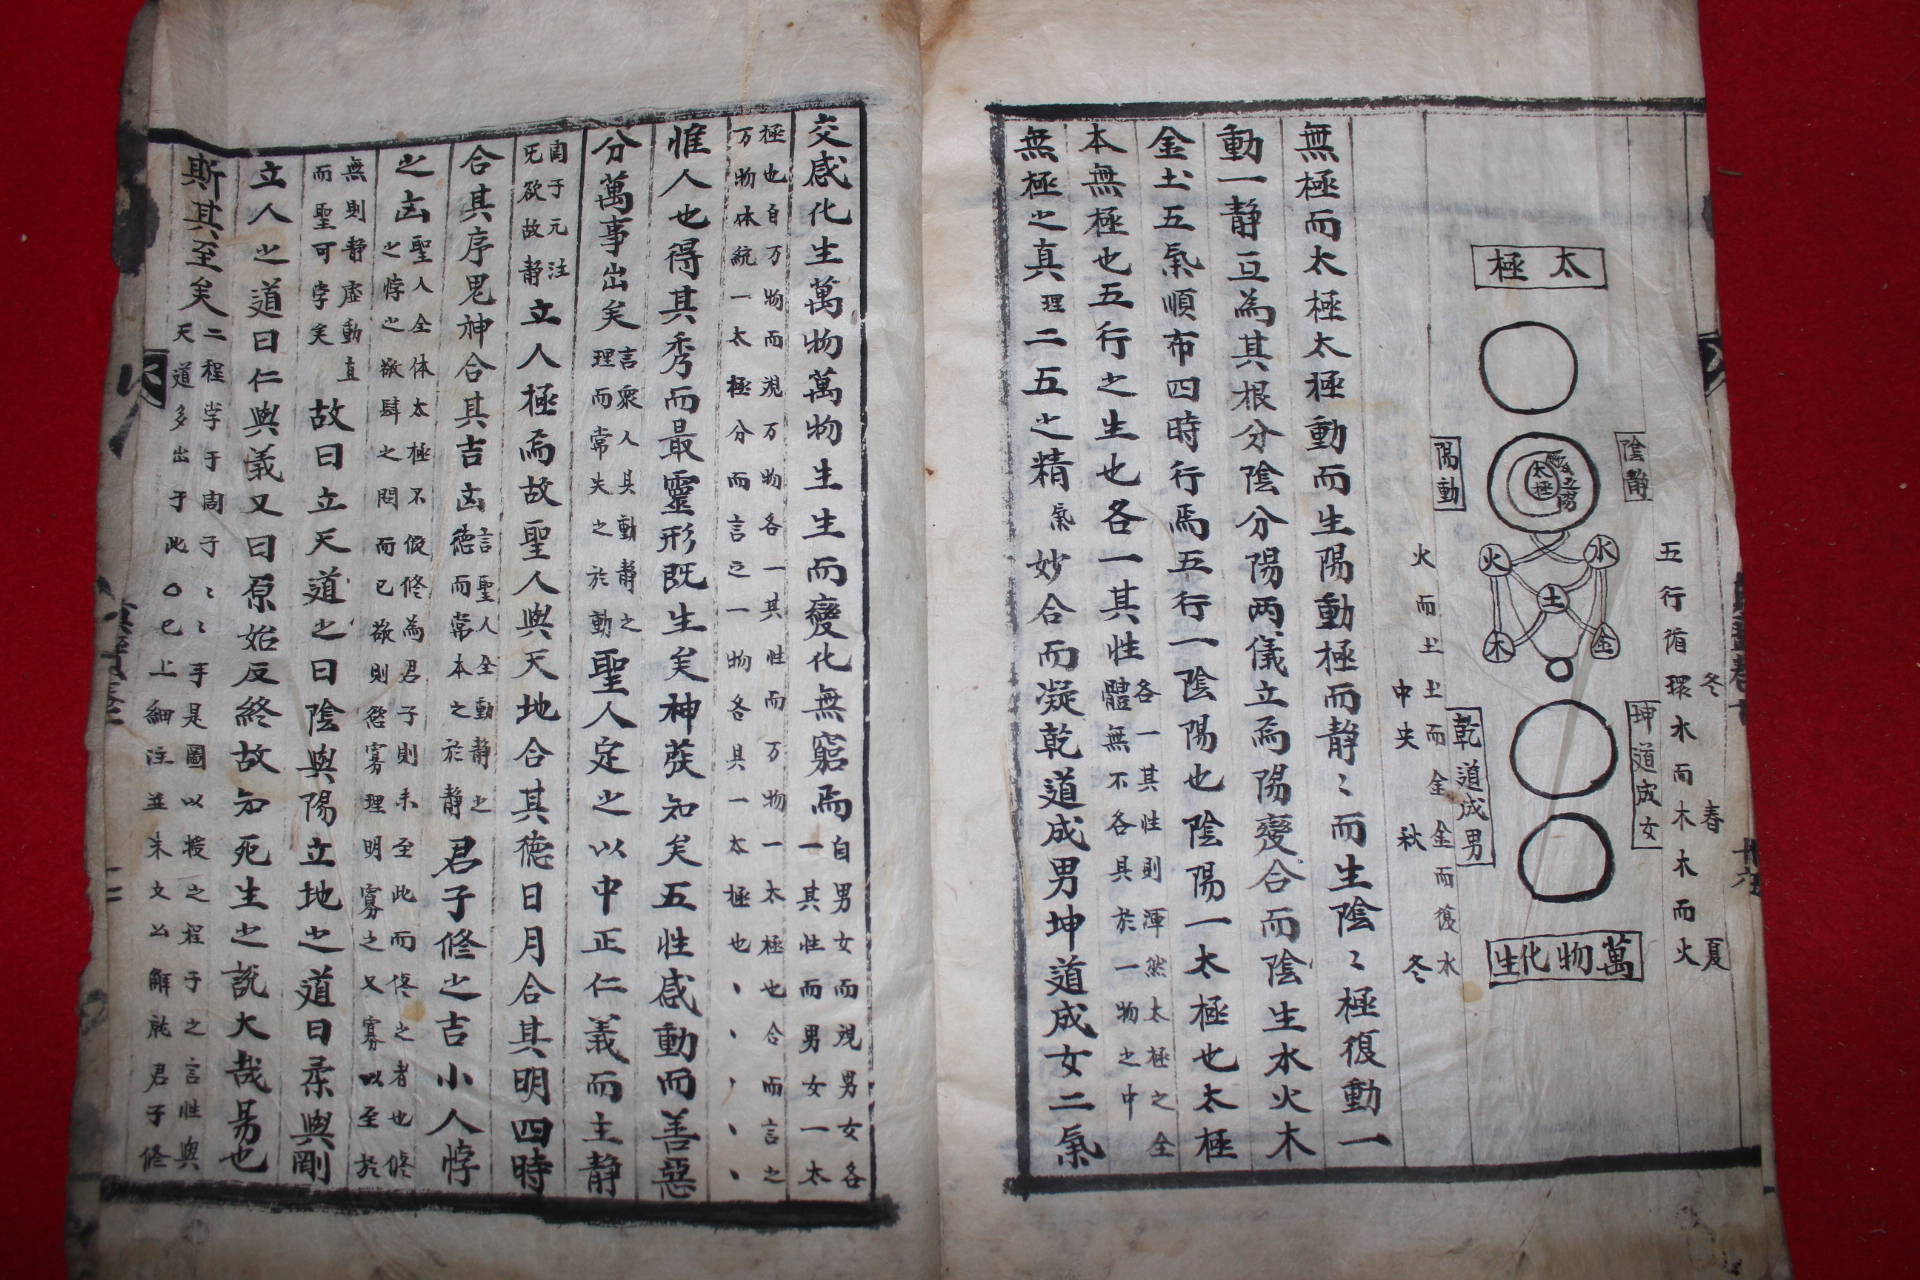 太極
陰靜
陽動
太極
水
火
土
金
木
坤道成女
乾道成男
萬物化生
五行循環水而木木而火
冬 春 夏
火而土土而金金而復水
中央 秋 冬
無極而太極太極動而生陽動極而靜〻而生陰〻極復動一
動一靜互為其根分陰分陽兩儀立焉陽變合而陰生水火木
金土五氣順布四時行焉五行一陰陽也陰陽一太極也太極
本無極也五行之生也各一其性
各一其性則渾然太極之全
體無不各具於一物之中
無極之真理二五之精氣妙合而凝乾道成男坤道成女二氣
交感化生萬物萬物生生而變化無窮焉
自男女而視男女各
一其性而男女一太
極也自万物而視万物各一其性而万物一太極也合而言之
万物体統一太極分而言之一物各具一太極也
惟人也得其秀而最靈形既生矣神發知矣五性感動而善惡
分萬事出矣
言衆人具動靜之
理而常失之於動
聖人定之以中正仁義而主靜
周子元注
无欲故靜
立人極焉故聖人與天地合其德日月合其明四時
合其序鬼神合其吉凶
言聖人全動靜之
德而常本之於靜
君子修之吉小人悖
之凶
聖人全体太極不假修為君子則未至此而修之者也修
之悖之敬肆之間而已敬則慾寡理明寡之又寡以至於
無則靜虛動直
而聖可學矣
故曰立天道之曰陰與陽立地之道曰柔與剛
立人之道曰仁與義又曰原始反終故知死生之說大哉易也
斯其至矣
二程学于周子〻〻手是圖以授之程子之言性與
天道多出于此○已上細注並朱文公解就君子修